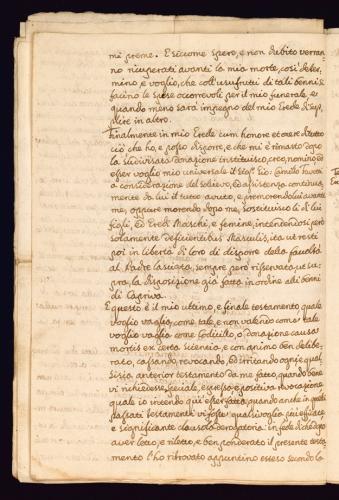 mi preme. E siccome spero, e non dubito verran-
no ricuperati avanti la mia morte, così deter-
mino, e voglio, che coll'usufrutti di tali benni si
facino le spese occorevoli per il mio funerale, e
quando meno sarà impegno del mio Erede di sup-
plire in altro.
Finalmente in mio Erede cum honore et onere di tutto
ciò che ho, e posso disporre, e che mi è rimasto dopo
la sudivisata donazione instituisco, creo, nomino, ed
esser voglio mio universale il Sig.r Gio: Camillo
a considerazione del solievo, ed assistenza continua-
mente da lui il tutto avuto, e premorendolui avanti
me, oppure morendo dopo me, sostituisco li di lui
figli, ed Eredi Maschi, e femine, intendendosi però
solamente deficientibus Masculis, ita ut resti
poi in libertà di loro di disporre della facoltà
al Padre lasciata, sempre però riservata, ut su-
pra, la disposizione già fatta in ordine alli benni
di
E questo è il mio ultimo, e finale testamento quale
voglio vaglia come tale, e non valendo come tale
voglio vaglia come Codicillo, o donazione causa
mortis ex certa scientia, e con animo ben delibe-
rato, cassando, revocando, ed irritando ogni e qual
sisia anterior testamento da me fatto, quando benne
vi richiedesse speciale, espressa, e positiva rivocazione
quale io intendo qui esser fatta, quando anche in questi
passati testamenti vi fosse qualsivoglia più efficace
e significante clausola derogatoria: in fede di che dopo
aver letto, e riletto, e ben ponderato il presente testa-
mento l'ho ritrovato appuntino esteso secondo la